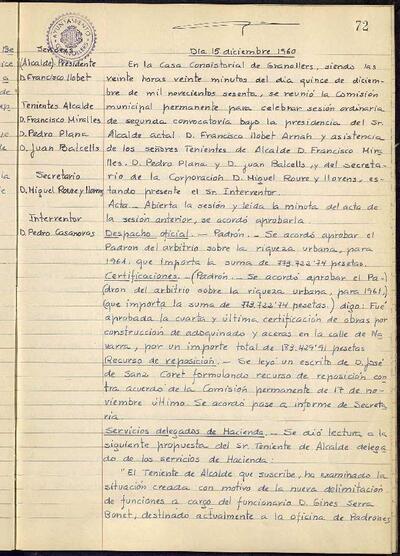 72
Señores
(Alcalde) Presidente
D. Francisco Llobet
Tenientes Alcalde
D. Francisco Miralles
D. Pedro Plana
D. Juan Balcells
Secretario
D. Miguel Roure y Llorens
Interventor
D. Pedro Casanovas
Día 15 diciembre 1960
En la Casa Consistorial de Granollers, siendo las
veinte horas veinte minutos del día quince de diciem-
bre de mil novecientos sesenta, se reunió la Comisión
municipal permanente para celebrar sesión ordinaria
de segunda convocatoria bajo la presidencia del Sr.
Alcalde actal D. Francisco Llobet Arnan y asistencia
de los señores Tenientes de Alcalde D. Francisco Mira-
lles, D. Pedro Plana y D. Juan Balcells, y del Secreta-
rio de la Corporación D. Miguel Roure y Llorens, es-
tando presente el Sr. Interventor.
Acta.- Abierta la sesión y leída la minuta del acta de
la sesión anterior, se acordó aprobarla
Despacho oficial.- Padrón.- Se acordó aprobar el
Padrón del arbitrio sobre la riqueza urbana, para
1961, que importa la suma de 773.722'74 pesetas.
Certificaciones.- (Padrón.- Se acordó aprobar el Pa-)
(dron del arbitrio sobre la riqueza urbana, para 1961,)
(que importa la suma de 773.722'74 pesetas.) digo: Fué
aprobada la cuarta y última certificación de obras por
construcción de adoquinado y aceras en la calle de Na-
varra, por un importe total de 183.429'91 pesetas
Recurso de reposición.- Se leyó un escrito de D. José
de Sanz Coret formulando recurso de reposición con-
tra acuerdo de la Comisión permanente de 17 de no-
viembre último. Se acordó pase a informe de Secreta-
ría
Servicios delegados de Hacienda.- Se dió lectura a la
siguiente propuesta del Sr. Teniente de Alcalde delega-
do de los servicios de Hacienda:
"El Teniente de Alcalde que suscribe, ha examinado la
situación creada con motivo de la nueva delimitación
de funciones a cargo del funcionario D. Gines Serra
Bonet, destinado actualmente a la oficina de Padrones